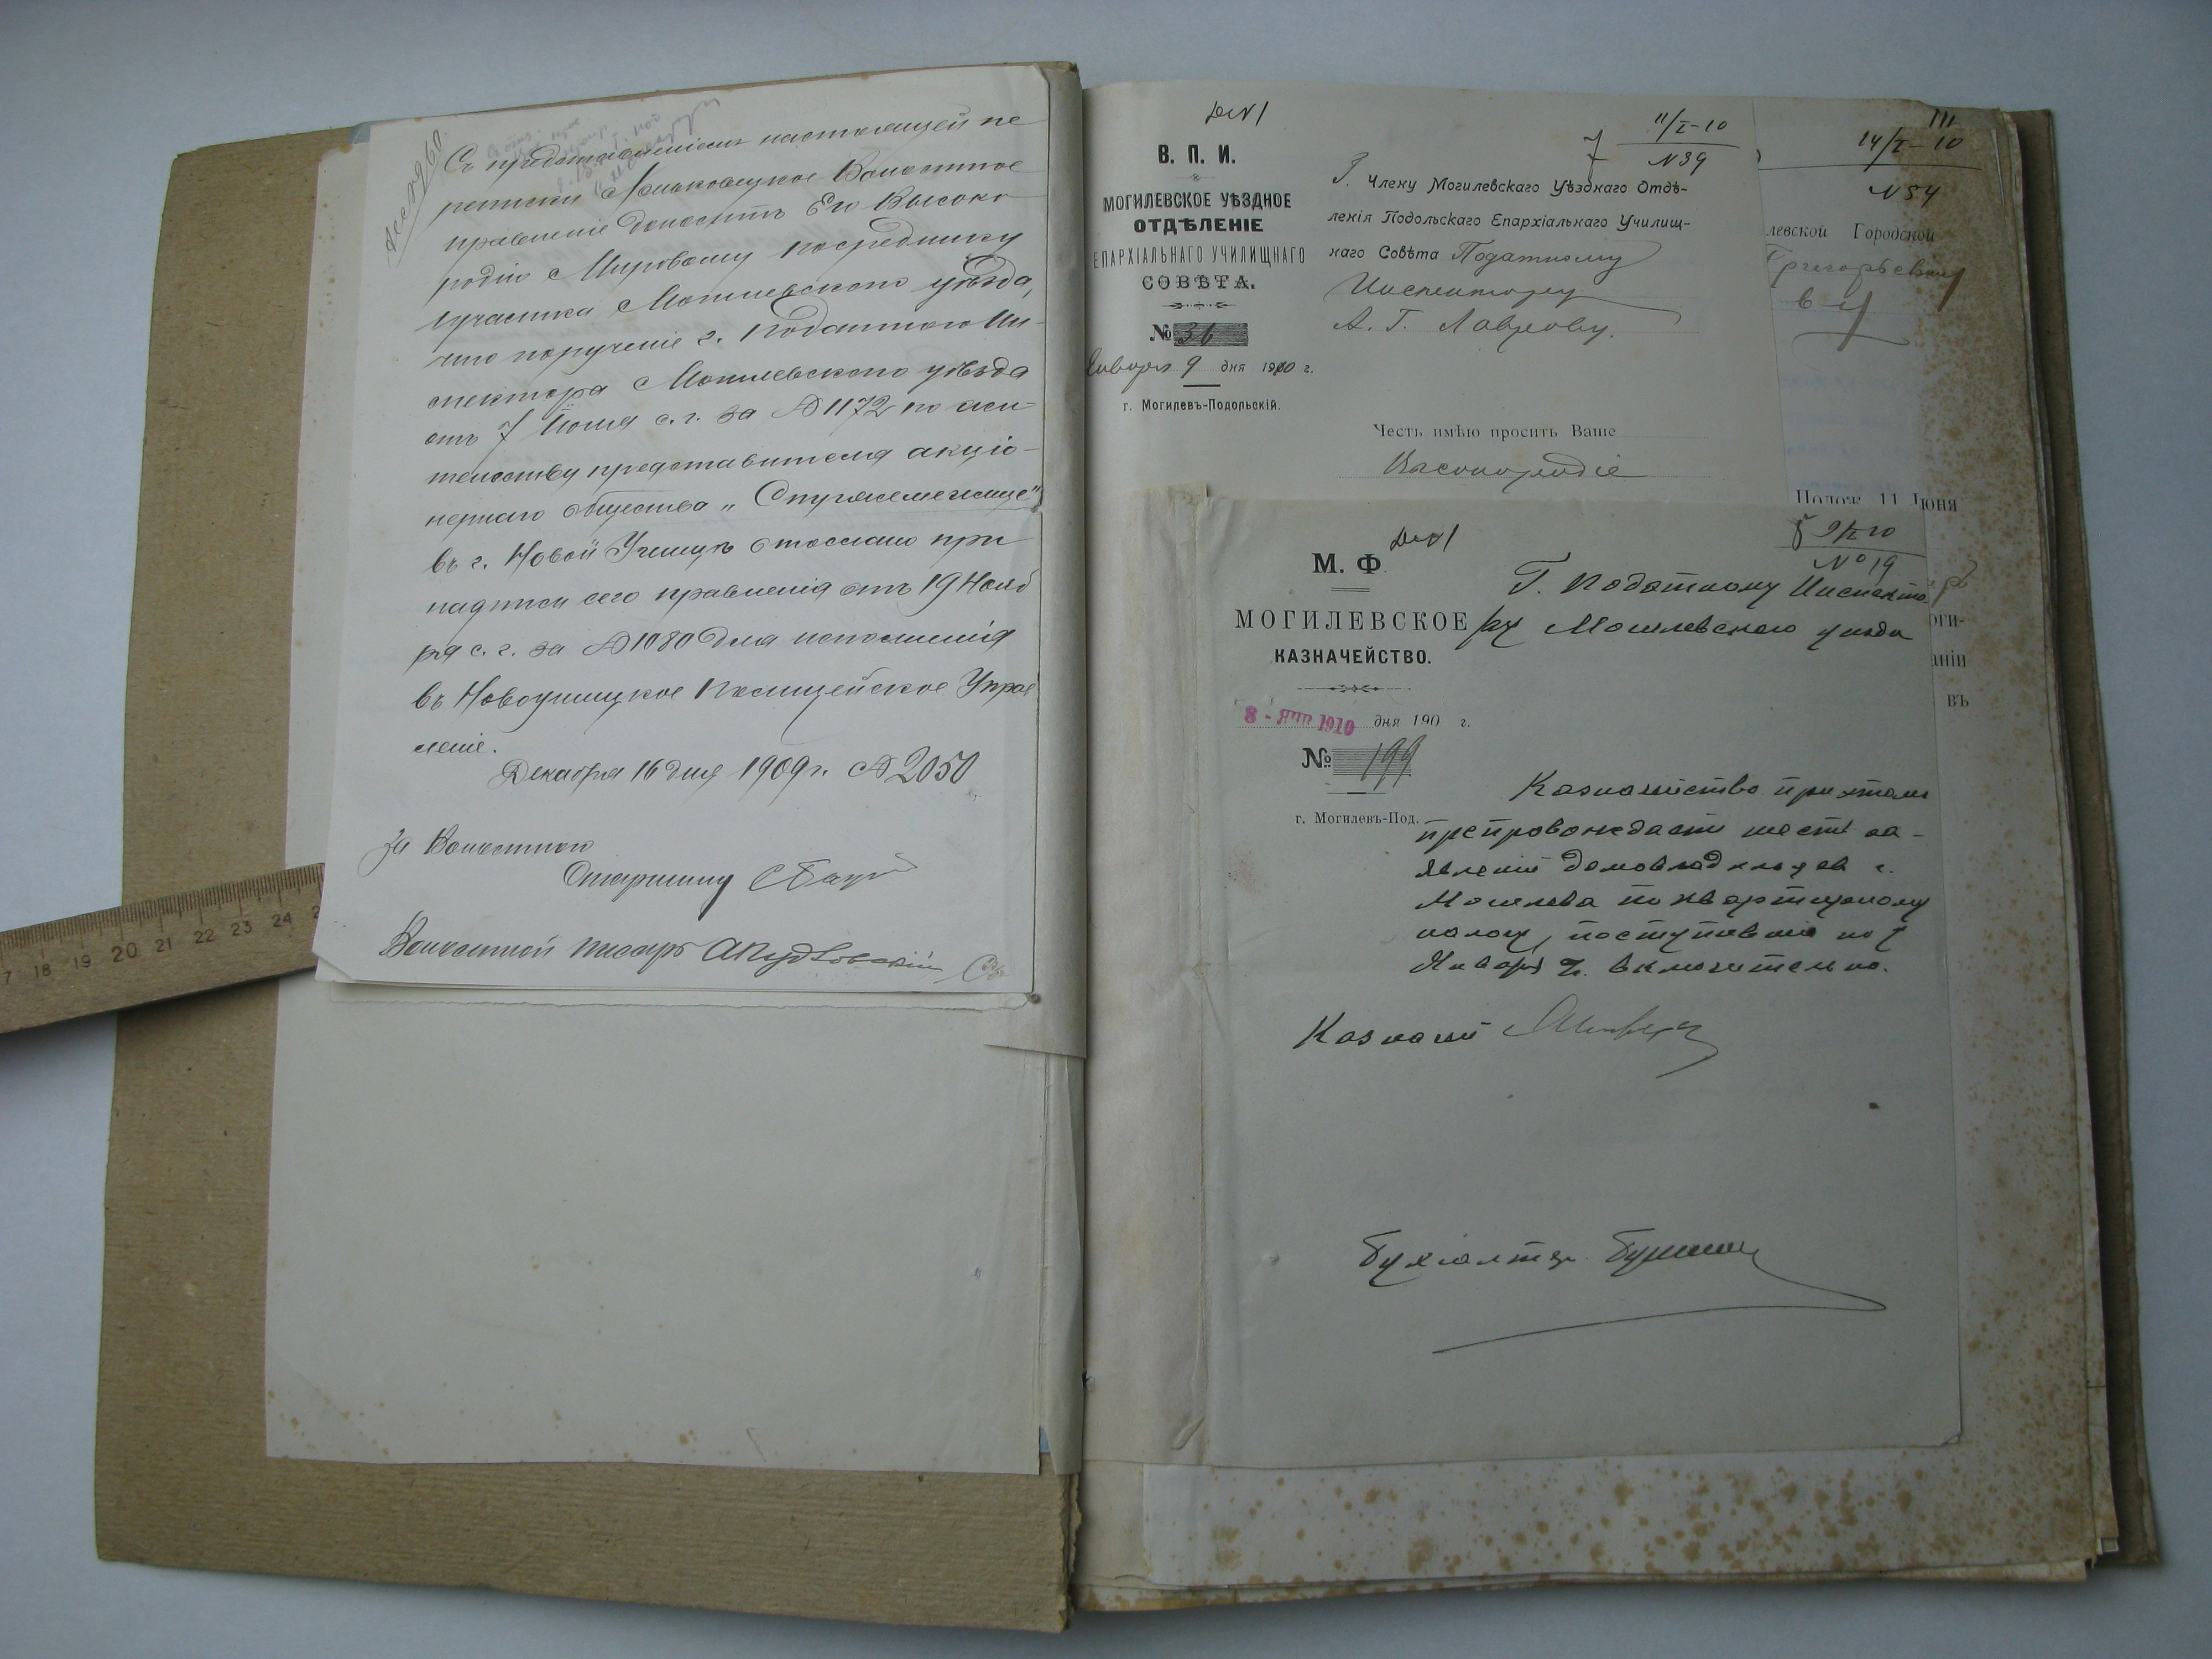 Съ представленіемъ настоящей пе
реписки Миньковецкое Волостное
правленіе доноситъ Его Высоко
родію Мировому посреднику
1 участка Могилевскаго уѣзда,
что порученіе г. Податного Ин-
спектора Могилевскаго уѣзда
отъ 7 Іюля с. г. за № 1172 по
тельству представителя акціо-
нернаго общества „
въ г. Новой Ушицѣ отослано при
надписи сего правленія отъ 19 Нояб
ря с. г. за № 1080 для исполненія
въ Новоушицкое Полицейское Управ
леніе.
Декабря 16 дня 1909 г. № 2050
За Волостного
Старшину
Волостной писарь
В. П. И.
МОГИЛЕВСКОЕ УѢЗДНОЕ
ОТДѢЛЕНІЕ
ЕПАРХІАЛЬНАГО УЧИЛИЩНАГО
СОВѢТА.
№ 36
Января 9 дня 1910 г.
г. Могилевъ-Подольскій.
11/I-10
№ 39
Г. Члену Могилевскаго Уѣзднаго Отдѣ-
ленія Подольскаго Епархіальнаго Училищ-
наго Совѣта Податному
Инспектору
А. Г. Лаврову.
Честь имѣю просить Ваше
Высокородіе
111
14/I-10
№ 54
левской Городской
Григорьевичу
Полож. 11 Іюня
оги-
аніи
въ
М. Ф.
МОГИЛЕВСКОЕ
КАЗНАЧЕЙСТВО.
8 - ЯНВ 1910 дня 190 г.
№ 199
г. Могилевъ-Под.
9/I 10
№ 19
Г. Податному Инспекто
ру Могилевскаго уезда
Казначейство при этомъ
препровождаетъ шесть за-
явленій домовладельцев г.
Могилева по квартирному
налогу, поступившія по 7
Января вг. включительно.
Казначей
Бухгалтер